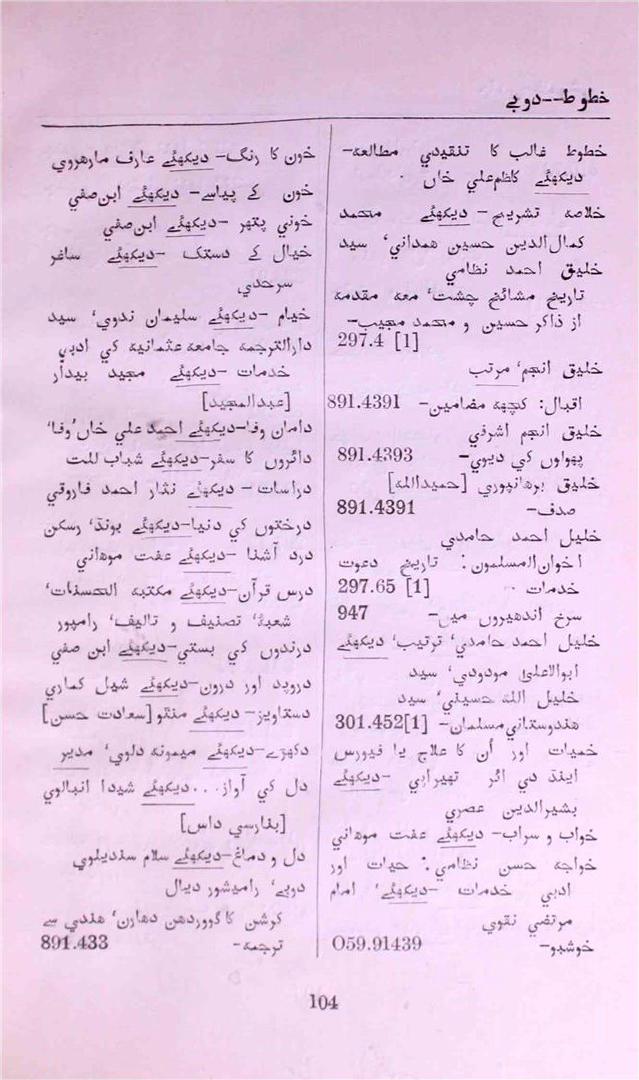 خطوط--دوبے
خطوط غالب کا تنقیدي مطالعہ-
دیکھئے کاظم علي خاں
خلاصہ تشریح- دیکھئے محمد
کمال الدین حسین همداني، سید
خلیق احمد نظامي
تاریخ مشائخ چشت، معہ مقدمہ
از ذاکر حسین و محمد مجیب-
297.4 [1]
خلیق انجم، مرتب
اقبال: کچھہ مضامین- 891.4391
خلیق انجم اشرفي
پھولوں کي دیوي- 891.4393
خلیق برهانپوري [حمیداللہ]
صدف- 891.4391
خلیل احمد حامدي
اخوان المسلمون: تاریخ دعوت
خدمات- 297.65 [1]
سرخ اندھیروں میں- 947
خلیل احمد حامدي، ترتیب، دیکھئے
ابوالاعلیٰ مودودي، سید
خلیل اللہ حسیني، سید
هندوستاني مسلمان- 301.452[1]
خمیات اور اُن کا علاج یا فیورس
اینڈ دي ائر تھیراپي -دیکھئے
بشیرالدین عصري
خواب و سراب- دیکھئے عفت موهاني
خواجہ حسن نظامي: حیات اور
ادبي خدمات -دیکھئے، امام
مرتضي نقوي
خوشبو- O59.91439
خون کا رنگ- دیکھئے عارف مارهروي
خون کے پیاسے- دیکھئے ابن صفي
خوني پتھر -دیکھئے ابن صفي
خیال کے دستک -دیکھئے ساغر
سرحدي
خیام -دیکھئے سلیمان ندوي، سید
دارالترجمہ جامعہ عثمانیہ کي ادبي
خدمات -دیکھئے مجید بیدار
[عبدالمجید]
دامان وفا-دیکھئے احمد علي خاں 'وفا'
دائروں کا سفر-دیکھئے شباب للت
دراسات - دیکھئے نثار احمد فاروقي
درختوں کي دنیا-دیکھئے بونڈ، رسکن
درد آشنا -دیکھئے عفت موهاني
درس قرآن-دیکھئے مکتبہ الحسنات،
شعبۂ تصنیف و تالیف، رامپور
درندوں کي بستي-دیکھئے ابن صفي
دروپد اور درون-دیکھئے شیل کماري
دستاویز- دیکھئے منٹو [سعادت حسن]
دکھڑے-دیکھئے میمونہ دلوي، مدیر
دل کي آواز...-دیکھئے شیدا انبالوي
[بنارسي داس]
دل و دماغ-دیکھئے سلام سندیلوي
دوبے، رامیشور دیال
کرشن کا گووردھن دھارن، هندي سے
ترجمہ- 891.433
104